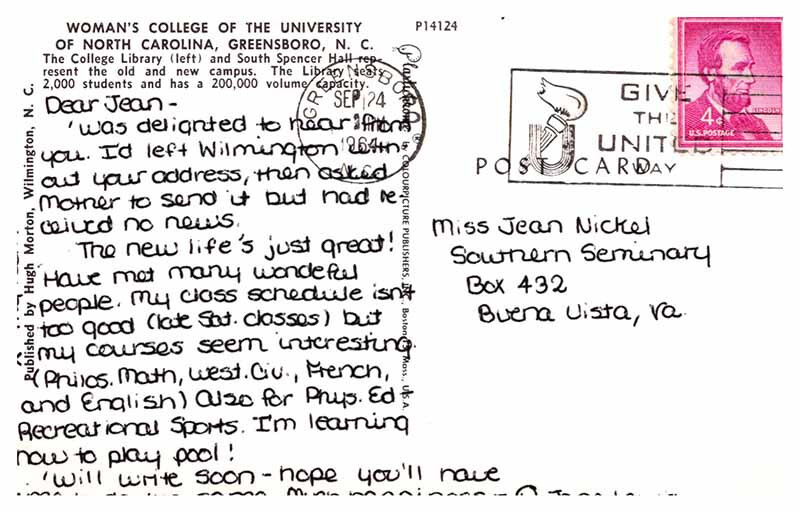 WOMAN'S COLLEGE OF THE UNIVERSITY
OF NORTH CAROLINA, GREENSBORO, N. C.
The College Library (left) and South Spencer Hall rep-
resent the old and new campus. The Library seats
2,000 students and has a 200,000 volume capacity.
P14124
Dear Jean -
'Was delighted to hear from
you. I'd left Wilmington with-
out your address, then asked
Mother to send it but had re-
ceived no news.
The new life's just great!
Have met many wonderful
people. My class schedule isn't
too good (late Sat. classes) but
my courses seem interesting
(Philos. Math, West. Civ., French,
and English) Also for Phys. Ed
Recreational Sports. I'm learning
how to play pool!
'Will write soon - hope you'll have
Published by Hugh Morton, Wilmington, N. C.
Plastichrome ® by COLOURPICTURE PUBLISHERS, INC., Boston, Mass., U.S.A.
GREENSBORO
SEP 24
1964
N.C.
GIVE
THE
UNITED
WAY
LINCOLN
4¢
U.S. POSTAGE
POST CARD
Miss Jean Nickel
Southern Seminary
Box 432
Buena Vista, Va.